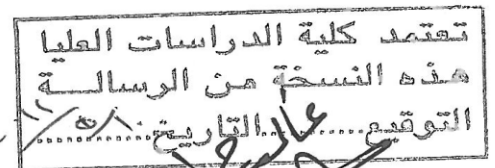 تعتمد كلية الدراسات العليا
هذه النسخة من الرسالــــة
التوقيع............التاريخ............